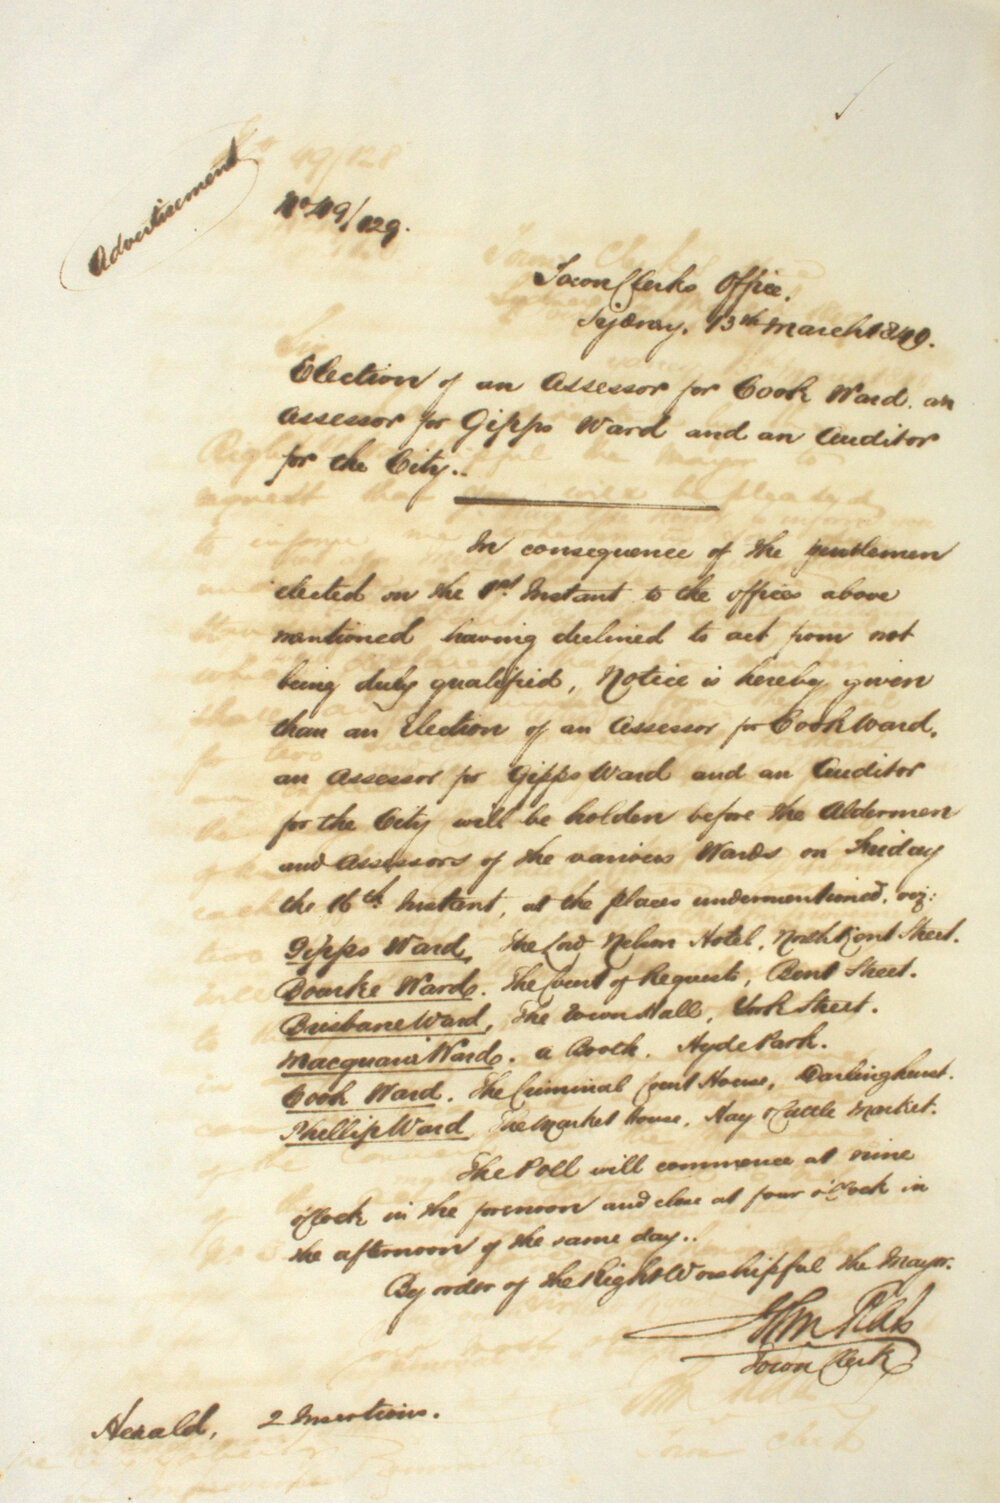 Advertisement
No 49/129.
Town Clerks Office.
Sydney. 13th March 1849.
Election of an Assessor for Cook Ward. an
Assessor for Gipps Ward and an Auditor
for the City..
In consequence of the gentlemen
elected on the 1st Instant to the offices above
mentioned having declined to act from not
being duly qualified, Notice is hereby given
than an Election of an Assessor for Cook Ward,
an Assessor for Gipps Ward and an Auditor
for the City will be holden before the Aldermen
and Assessors of the various Wards on Friday
the 16th Instant, at the places undermentioned, viz:
Gipps Ward, The Lord Nelson Hotel, North Kent Street.
Bourke Ward. The Court of Requests, Bent Street.
Brisbane Ward, The Town Hall, York Street.
Macquarie Ward. a Booth. Hyde Park.
Cook Ward. The Criminal Court House, Darlinghurst.
Phillip Ward The Market House, Hay & Cattle Market.
The Poll will commence at nine
o'Clock in the forenoon and close at four o'Clock in
the afternoon of the same day..
By order of the Right Worshipful the Mayor.
Town Clerk
Herald, 2 Insertions.